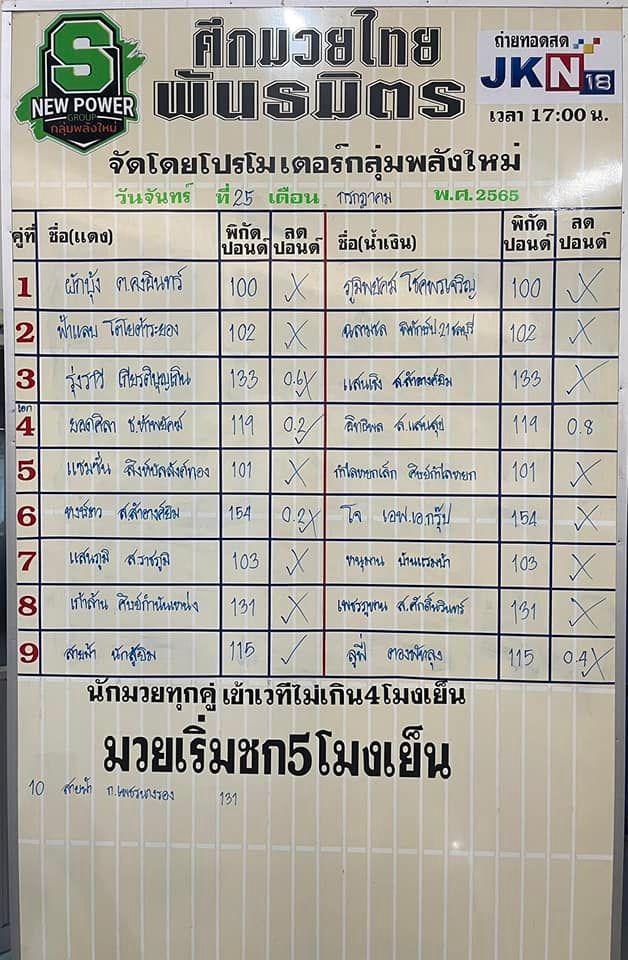 S
NEW POWER
GROUP
กลุ่มพลังใหม่
ศึกมวยไทย
พันธมิตร
ถ่ายทอดสด
JKN18
เวลา 17:00 น.
จัดโดยโปรโมเตอร์กลุ่มพลังใหม่
วันจันทร์ ที่ 25 เดือน กรกฎาคม พ.ศ.2565
คู่ที่ ชื่อ(แดง) พิกัดปอนด์ ลดปอนด์ ชื่อ(น้ำเงิน) พิกัดปอนด์ ลดปอนด์
1 ผักบุ้ง ต.คงอินทร์ 100 ภูมิพยัคฆ์ โชคพรเจริญ 100
2 ฟ้าแลบ โตโยต้าระยอง 102 ฉลามชล 102
3 รุ่งราวี เกียรติบุญเกิน 133 0.6 แสนเชิง ส.สำอางค์ยิม 133
เอก
4 ยอดศิลา ช.ห้าพยัคฆ์ 119 0.2 อิทธิพล ส.แสนสุข 119 0.8
5 แชมชั่น สิงห์บัลลังค์ทอง 101 กำไลหยกเล็ก ศิษย์กำไลหยก 101
6 ส.สำอางค์ยิม 154 0.2 โจ เอฟ.เอกรุ๊ป 154
7 แสนภูมิ ส.ราชภูมิ 103 หนุมาน 103
8 เก้าล้าน ศิษย์กำนันแหน่ง 131 เพชรภูพาน ส.ศักดิ์นรินทร์ 131
9 สายฟ้า นักสู้ยิม 115 ลุฟี่ ตองพัทลุง 115 0.4
นักมวยทุกคู่ เข้าเวทีไม่เกิน4โมงเย็น
มวยเริ่มชก5โมงเย็น
10 สายฟ้า ก.เพชรนางรอง 131